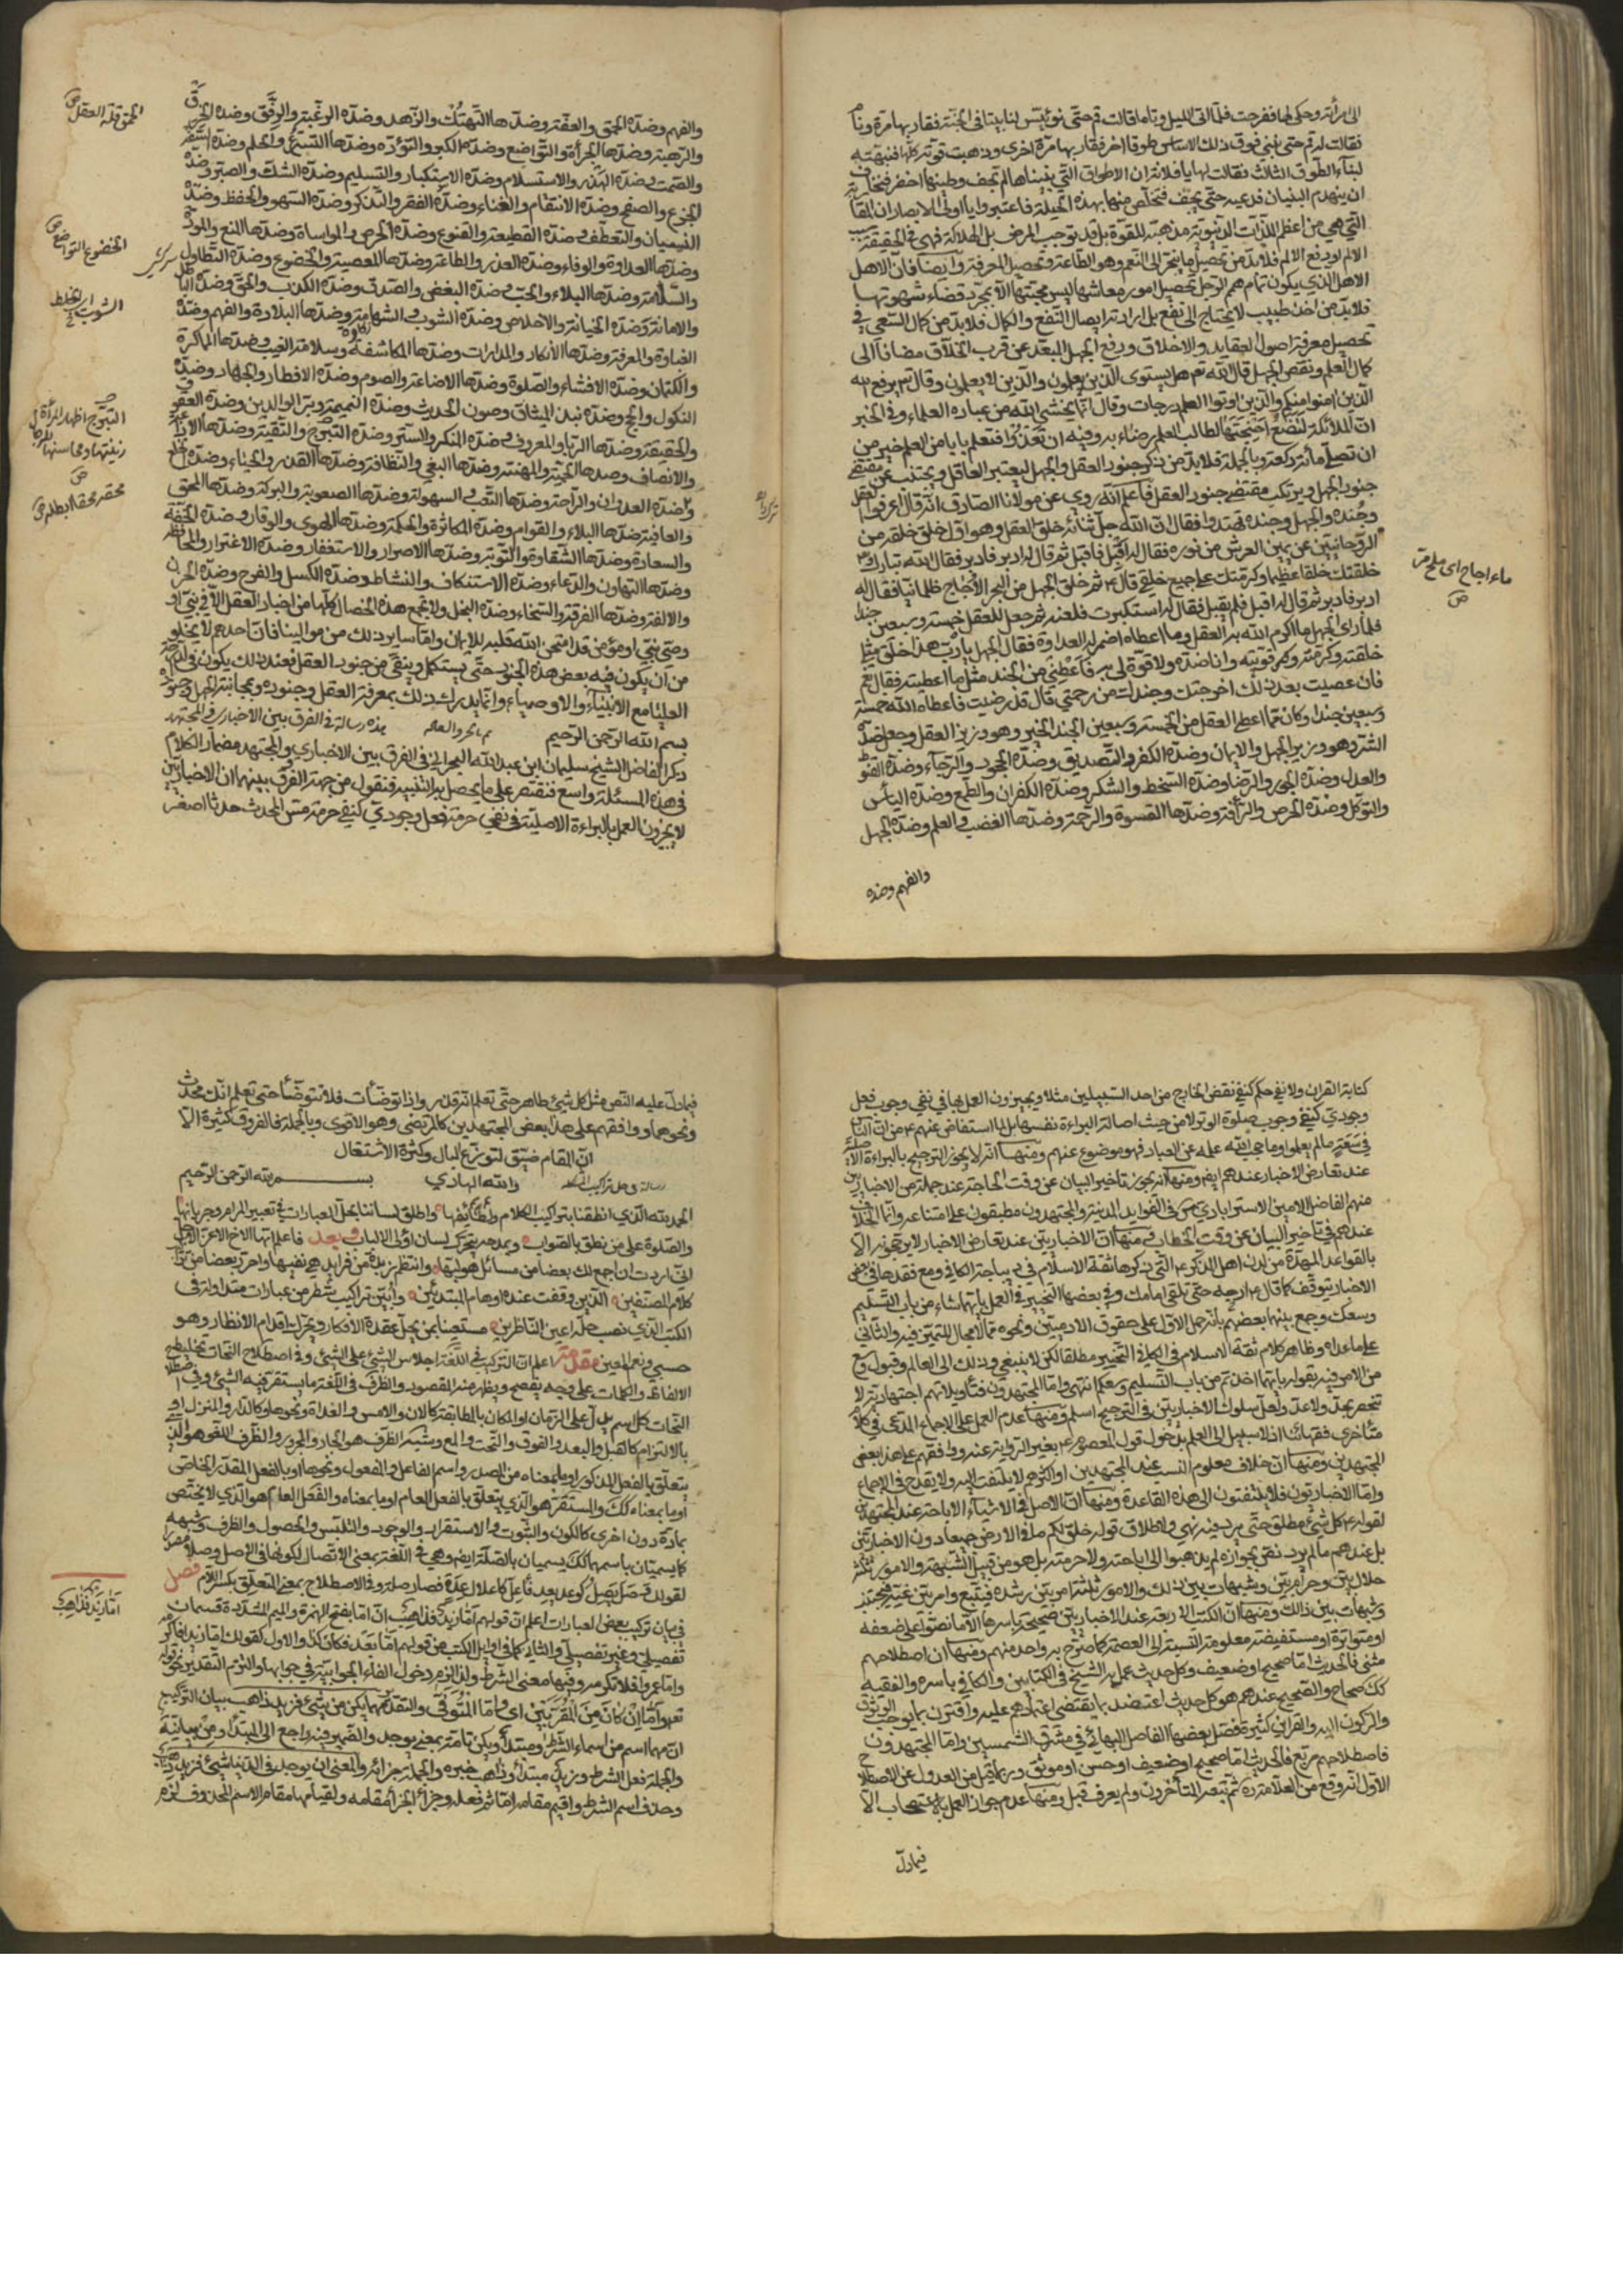 الى امرأته وحكى لها ففرحت فلما اتى الليل وناما قالت قم حتى نؤسس لنا بيتا في الجنة فقاربها مرة ونام
فقالت له قم حتى نبني فوق ذلك الاساس طوقا اخر فقاربها مرة اخرى وذهبت قوته كلها فنبهته
لبناء الطوق الثالث فقالت لها يا فلانة ان الاطواق التي بنيناها لم تجف وطينها اخضر فنخاف
ان ينهدم البنيان فدعيه حتى يجف فتخلص منها بهذه الحيلة فاعتبروا يا اولي الابصار ان المقاربة
التي هي من اعظم اللذات الدنيوية مذهبة للقوة بل قد توجب المرض بل الهلاكة فهي في الحقيقة سبب
الالم او دفع الالم فلا بد من تحصيل ما ينجر الى النعم وهو الطاعة وتحصيل المعرفة وايضا فان الاهل
الاهل الذي يكون تمام هم الرجل تحصيل امور معاشها ليس محبتها الا بمجرد قضاء شهوتها
فلا بد من اخذ طبيب لا يحتاج الى نفع بل ارادته ايصال النفع والكمال فلا بد من كمال السعي في
تحصيل معرفة اصول العقايد والاخلاق ورفع الجهل المبعد عن قرب الخلاق مضافا الى
كمال العلم ونقص الجهل قال الله تع هل يستوى الذين يعلمون والذين لا يعلمون وقال تع يرفع الله
الذين امنوا منكم والذين اوتوا العلم درجات وقال انما يخشى الله من عباده العلماء وفي الخبر
ان الملائكة لتضع اجنحتها لطالب العلم رضاء به وفيه ان تغدوا فتعلم بابا من العلم خير من
ان تصلي مائة ركعة وبالجملة فلا بد من ذكر جنود العقل والجهل ليعتبر العاقل ويجتنب عن مقتضى
جنود الجهل ويرتكب مقتضى جنود العقل فاعلم انه روي عن مولانا الصادق انه قال اعرفوا العقل
وجنده والجهل وجنده تهتدوا فقال ان الله جل ثنائه خلق العقل وهو اول خلق خلقه من
الروحانيين عن يمين العرش من نوره فقال له اقبل فاقبل ثم قال له ادبر فادبر فقال الله تبارك وتع
خلقتك خلقا عظيما وكرمتك على جميع خلقي قال ثم خلق الجهل من البحر الاجاج ظلمانيا فقال له
ادبر فادبر ثم قال له اقبل فلم يقبل فقال له استكبرت فلعنه ثم جعل للعقل خمسة وسبعين جندا
فلما راى الجهل ما اكرم الله به العقل وما اعطاه اضمر له العداوة فقال الجهل يا رب هذا خلق مثلي
خلقته وكرمته وقويته وانا ضده ولا قوة لي به فاعطني من الجند مثل ما اعطيته فقال نعم
فان عصيت بعد ذلك اخرجتك وجندك من رحمتي قال قد رضيت فاعطاه الله خمسة
وسبعين جندا وكان مما اعطى العقل من الخمسة وسبعين الجند الخير وهو وزير العقل وجعل ضده
الشر وهو وزير الجهل والايمان وضده الكفر والتصديق وضده الجحود والرجاء وضده القنوط
والعدل وضده الجور والرضا وضده السخط والشكر وضده الكفران والطمع وضده الياس
والتوكل وضده الحرص والرأفة وضدها القسوة والرحمة وضدها الغضب والعلم وضده الجهل
والفهم وضده
ماء اجاج اى ملح مر
ص
والفهم وضده الحمق والعفة وضدها التهتك والزهد وضده الرغبة والرفق وضده الخرق
والرهبة وضدها الجرأة والتواضع وضده الكبر والتؤدة وضدها التسرع والحلم وضده السفه
والصمت وضده الهذر والاستسلام وضده الاستكبار والتسليم وضده الشك والصبر وضده
الجزع والصفح وضده الانتقام والغناء وضده الفقر والتذكر وضده السهو والحفظ وضده
النسيان والتعطف وضده القطيعة والقنوع وضده الحرص والمواساة وضدها المنع والمودة
وضدها العداوة والوفاء وضده الغدر والطاعة وضدها المعصية والخضوع وضده التطاول
والسلامة وضدها البلاء والحب وضده البغض والصدق وضده الكذب والحق وضده الباطل
والامانة وضده الخيانة والاخلاص وضده الشوب والشهامة وضدها البلادة والفهم وضده
الغباوة والمعرفة وضدها الانكار والمدارات وضدها المكاشفة وسلامة الغيب وضدها المماكرة
والكتمان وضده الافشاء والصلوة وضدها الاضاعة والصوم وضده الافطار والجهاد وضده
النكول والحج وضده نبذ الميثاق وصون الحديث وضده النميمة وبر الوالدين وضده العقوق
والحقيقة وضدها الريا والمعروف وضده المنكر والستر وضده التبرج والتقية وضدها الاذاعة
والانصاف وضدها الحمية والمهنة وضدها البغي والنظافة وضدها القذر والحياء وضده الخلع
وضده العدوان والراحة وضدها التعب والسهولة وضدها الصعوبة والبركة وضدها المحق
والعافية وضدها البلاء والقوام وضده المكاثرة والحكمة وضدها الهوى والوقار وضده الخفة
والسعادة وضدها الشقاوة والتوبة وضدها الاصرار والاستغفار وضده الاغترار والمحافظة
وضدها التهاون والدعاء وضده الاستنكاف والنشاط وضده الكسل والفرح وضده الحزن
والالفة وضدها الفرقة والسخاء وضده البخل ولا تجمع هذه الخصال كلها من اجناد العقل الا في نبي او
وصي نبي او مؤمن قد امتحن الله قلبه للايمان واما ساير ذلك من موالينا فان احدهم لا يخلو
من ان يكون فيه بعض هذه الجنود حتى يستكمل وينقى من جنود العقل فعند ذلك يكون في الدرجة
العليا مع الانبياء والاوصياء وانما يدرك ذلك بمعرفة العقل وجنوده ومجانبة الجهل وجنوده
بسم الله الرحمن الرحيم هذه رسالة في الفرق بين الاخباري والمجتهد
ذكر الفاضل الشيخ سليمان ابن عبد الله البحراني في الفرق بين الاخباري والمجتهد مضمار الكلام
في هذه المسئلة واسع فنقتصر على ما يحصل به التنبيه فنقول من جهة الفرق بينهما ان الاخباريين
لا يجوزون العمل بالبراءة الاصلية في نفي حرمة فعل وجودي كنفي حرمة مس المحدث حدثا اصغر
الحمق قلة العقل ص
الخضوع التواضع ص
الشوب الخلط
التبرج اظهار المرأة
زينتها ومحاسنها للرجال
ص
محقه محقا ابطله ص
كتابة القران ولا نفي حكم كنفي نقض الخارج من احد السبيلين مثلا ويجيزون العمل بها في نفي وجوب فعل
وجودي كنفي وجوب صلوة الوتر لا من حيث اصالة البراءة نفسها بل لما استفاض عنهم ع من ان الناس
في سعة ما لم يعلموا وما حجب الله علمه عن العباد فهو موضوع عنهم ومنها انه لا يجوز الترجيح بالبراءة الاصلية
عند تعارض الاخبار عندهم ومنها انه يجوز تاخير البيان عن وقت الحاجة عند جملة من الاخباريين
منهم الفاضل الامين الاستر ابادي في الفوايد المدنية والمجتهدون مطبقون على امتناعه وانما الخلاف
عندهم في تاخير البيان عن وقت الخطاب ومنها ان الاخباريين عند تعارض الاخبار لا يرجحون الا
بالقواعد الممهدة من لدن اهل الذكر ع التي ذكرها ثقة الاسلام في ديباجة الكافي ومع فقدها في بعض
الاخبار يتوقف كما قال ع ارجه حتى تلقى امامك وفي بعضها التخيير في العمل بايهما شاء من باب التسليم
وسعك وجمع بينهما بعضهم بانه حمل الاول على حقوق الادميين ونحوه مما لا مجال للتميز فيه والثاني
على ما عداه وظاهر كلام ثقة الاسلام في الكافي التخيير مطلقا
من الامر فيه بقوله بايهما اخذتم من باب التسليم وسعكم انتهى واما المجتهدون
تنحصر بحد ولا عد ولعل سلوك الاخباريين في الترجيح اسلم ومنها عدم العمل على الاجماع المدعى في كلام
متأخري فقهائنا اذ لا سبيل الى العلم بدخول قول المعصوم ع بغير الرواية عنه ووافقهم على هذا بعض
المجتهدين ومنها ان خلاف معلوم النسب عند المجتهدين او اكثرهم لا يلتفت اليه ولا يقدح في الاجماع
واما الاخباريون فلا يلتفتون الى هذه القاعدة ومنها ان الاصل في الاشياء الاباحة عند المجتهدين
لقوله ع كل شيئ مطلق حتى يرد فيه نهي ولاطلاق قوله خلق لكم ما في الارض جميعا دون الاخباريين
بل عندهم ما لم يرد نص بجوازه لم يذهبوا الى اباحته ولا حرمته بل هو من قبيل الشبهة والامور ثلثة
حلال بين وحرام بين وشبهات بين ذلك والامور ثلثة امر بين رشده فيتبع وامر بين غيه فيجتنب
وشبهات بين ذالك ومنها ان الكتب الاربعة عند الاخباريين صحيحة باسرها الا ما نصوا على ضعفه
او متواترة او مستفيضة معلومة النسبة الى العصمة كما صرح به واحد منهم ومنها ان اصطلاحهم
مثنى فالحديث اما صحيح او ضعيف وكل حديث عمل به الشيخ في الكتابين والكافي باسره والفقيه
كك صحاح والصحيح عندهم هو كل حديث اعتضد بما يقتضي اعتمادهم عليه واقترن بما يوجب الوثوق
والركون اليه والقراين كثيرة فصل بعضها الفاضل البهائي في مشرق الشمسين واما المجتهدون
فاصطلاحهم مربع فالحديث اما صحيح او ضعيف او حسن او موثق وربما قيل من العدول عن الاصطلاح
الاول انه وقع من العلامة ره ثم تبعه المتأخرون ولم يعرف قبل ومنها عدم جواز العمل بالاستصحاب الا
فيما دل
فيما دل عليه النص مثل كل شيئ طاهر حتى تعلم انه قذر واذا توضأت فلا تتوضأ حتى تعلم انك محدث
ونحوهما ووافقهم على هذا بعض المجتهدين كالمرتضى وهو الاقوى وبالجملة فالفروق كثيرة الا
ان المقام ضيق لتوزع البال وكثرة الاشتغال
والله الهادي بسم الله الرحمن الرحيم
الحمد لله الذي انطقنا بتراكيب الكلام واطلق لساننا بحل العبارات في تعبير المرام وجريانها
والصلوة على من نطق بالصواب وبمدحه يتحرك لسان اولى الالباب وبعد فاعلم ايها الاخ الاعز
اني اردت ان اجمع لك بعضا من مسائل
كلام المصنفين الذين وقفت عنده اوهام المبتدئين وابين تراكيب شطر من عبارات متداولة في
الكتب الذي نصب حلها عين الناظرين مستعينا بمن يحل عقدة الافكار ويحرك اقدام الانظار وهو
حسبي ونعم المعين مقدمة اعلم ان التركيب في اللغة اجلاس الشيئ على الشيئ وفي اصطلاح النحات تخليط
الالفاظ والكلمات على وجه يفصح ويظهر منه المقصود والظرف في اللغة ما يستقر فيه الشيئ وفي اصطلاح
النحات كل اسم يدل على الزمان او المكان بالمطابقة كالان والامس والغداة ونحوها وكالدار والمنزل او
بالالتزام كالقبل والبعد والفوق والتحت والمع وشبه الظرف هو الجار والمجرور والظرف اللغو هو الذي
يتعلق بالفعل المذكور او بما بمعناه من المصدر واسم الفاعل والمفعول ونحوها او بالفعل المقدر الخاص
او ما بمعناه كك والمستقر هو الذي يتعلق بالفعل العام او ما بمعناه والفعل العام هو الذي لا يختص
بمادة دون اخرى كالكون والثبوت والاستقرار والوجود والتلبس والحصول والظرف وشبهه
كما يسميان باسمهما كك يسميان بالصلة ايضا وهي في اللغة بمعنى الاتصال لكونها في الاصل
لقولك وصل يصل كوعد يعد فاعل كاعلال عدة فصار صلة وفي الاصطلاح بمعنى المتعلق بكسر اللام فصل
في بيان تركيب بعض العبارات اعلم ان قولهم اما زيد فذاهب ان اما بفتح الهمزة والميم المشددة قسمان
تفصيلي وغير تفصيلي والثاني كما في اوايل الكتب من قولهم اما بعد فكان كذا والاول كقولك اما زيد فاكرمه
واما عمرو فلا تكرمه وفيها معنى الشرط ولذا لزم دخول الفاء الجوابية في جوابها والتزم التقدير نحو قوله
تع واما ان كان من المقربين اى واما المتوفى والتقدير مهما يكن من شيئ فزيد ذاهب بيان التركيب
ان مهما اسم من اسماء الشرط ومبتدأ ويكن تامة بمعنى يوجد والضمير فيه راجع الى المبتدأ ومن بيانية
والجملة فعل الشرط وزيد مبتدأ وذاهب خبره والجملة جزائه والمعنى ان يوجد في الدنيا شيئ فزيد ذاهب
وحذف اسم الشرط واقيم مقامه اما ثم فعله وجزائ الجزاء مقامه ولقيامها مقام الاسم المحذوف لزم
اما زيد فذاهب